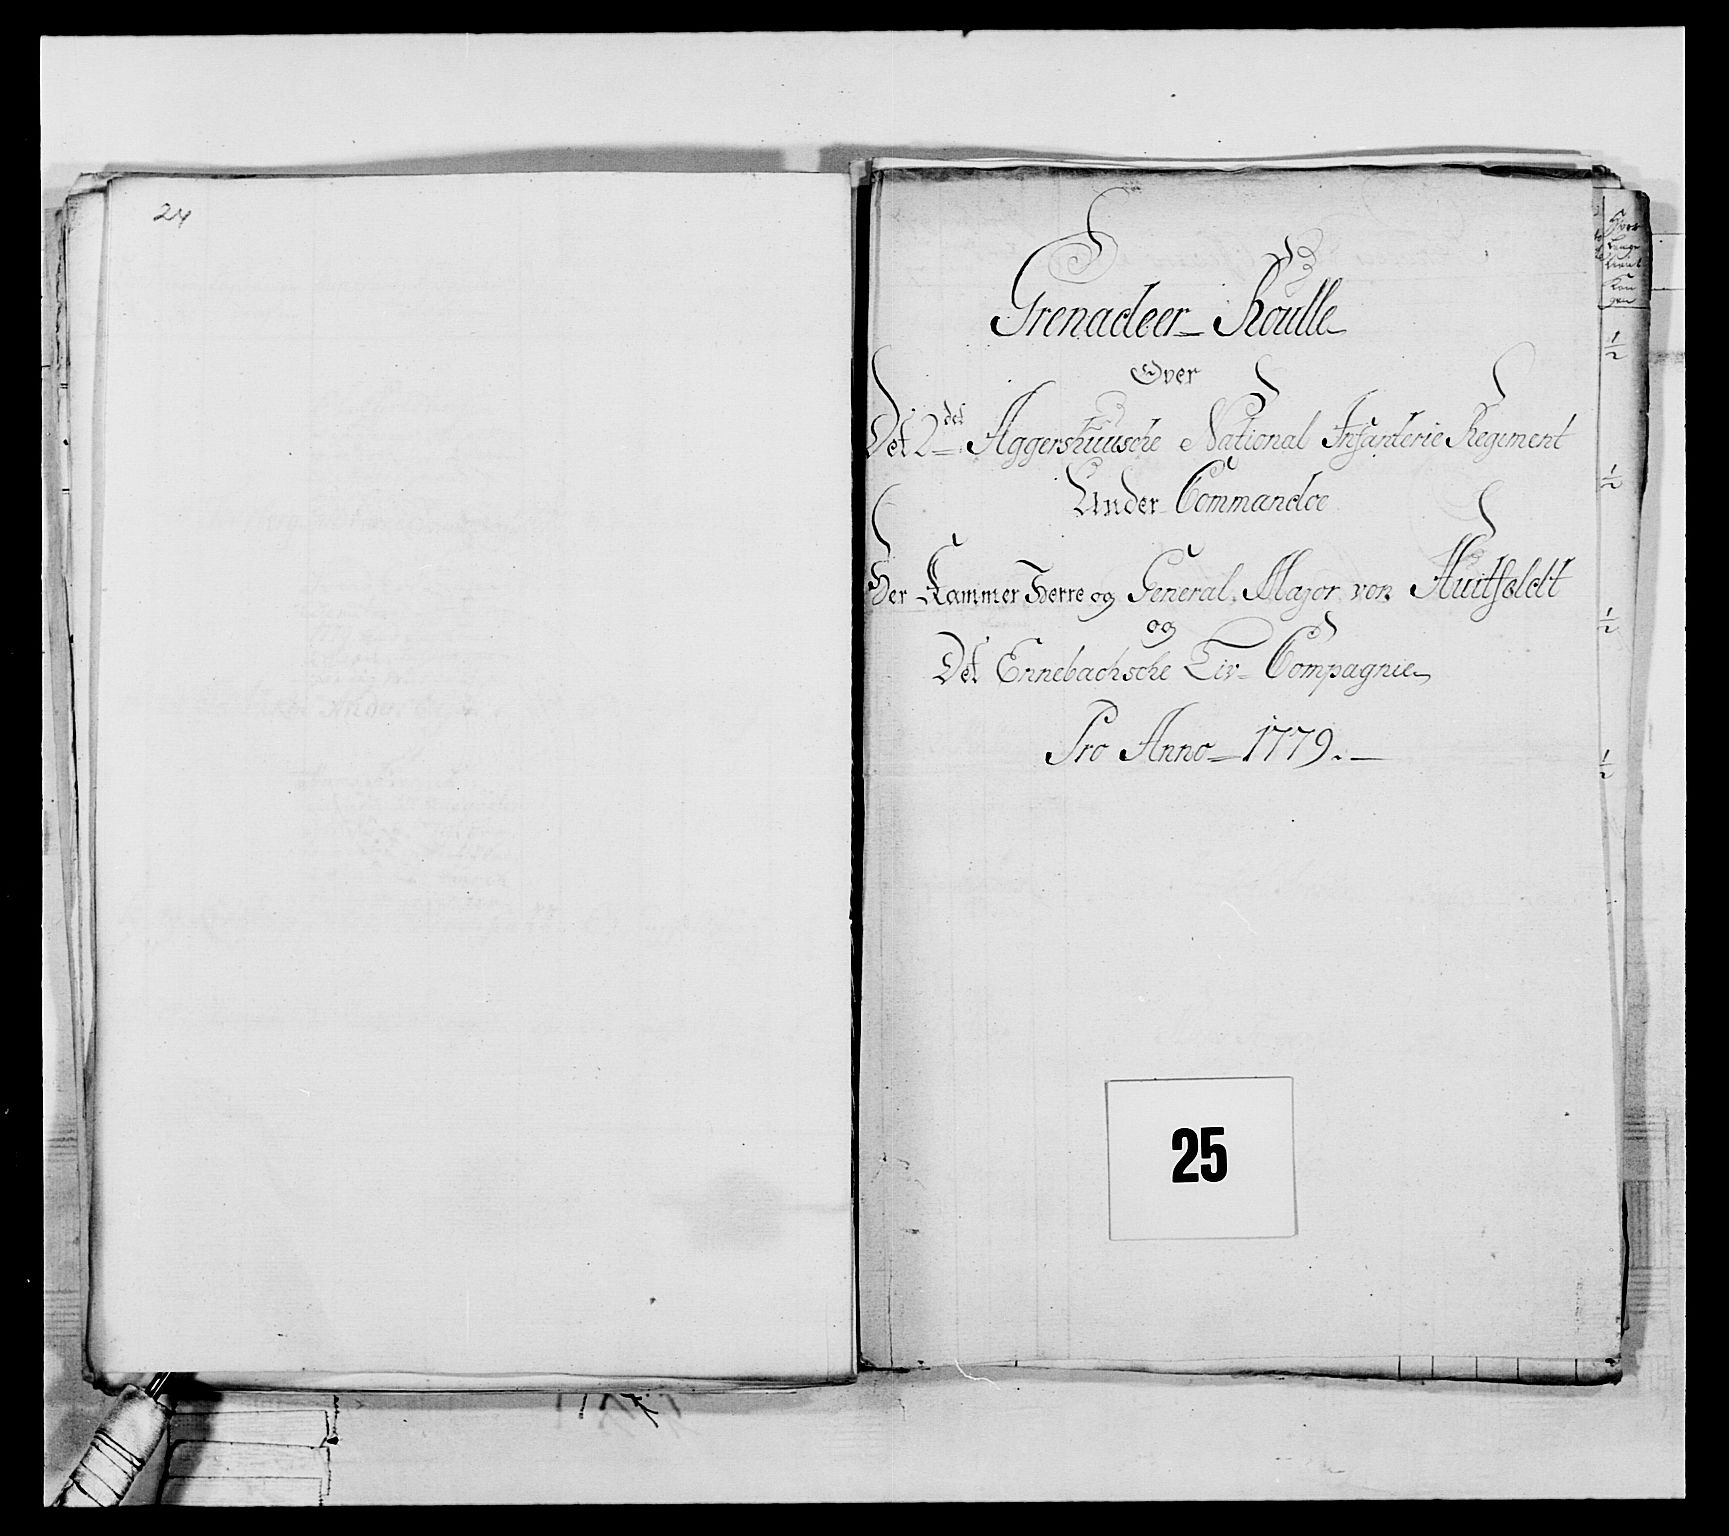 24
Grenadeer_ Roulle_
Over
Det 2det Aggershuusche National Infanterie Regiment
Under Commandoe
Her Kammer Herre og General, Major von Huitfeldt
og
Det Ennebachsche Liv_ Compagnie_
Pro Anno_ 1779._
25
Hver
Kon
gen
1/2
1/2
1/2
1/2